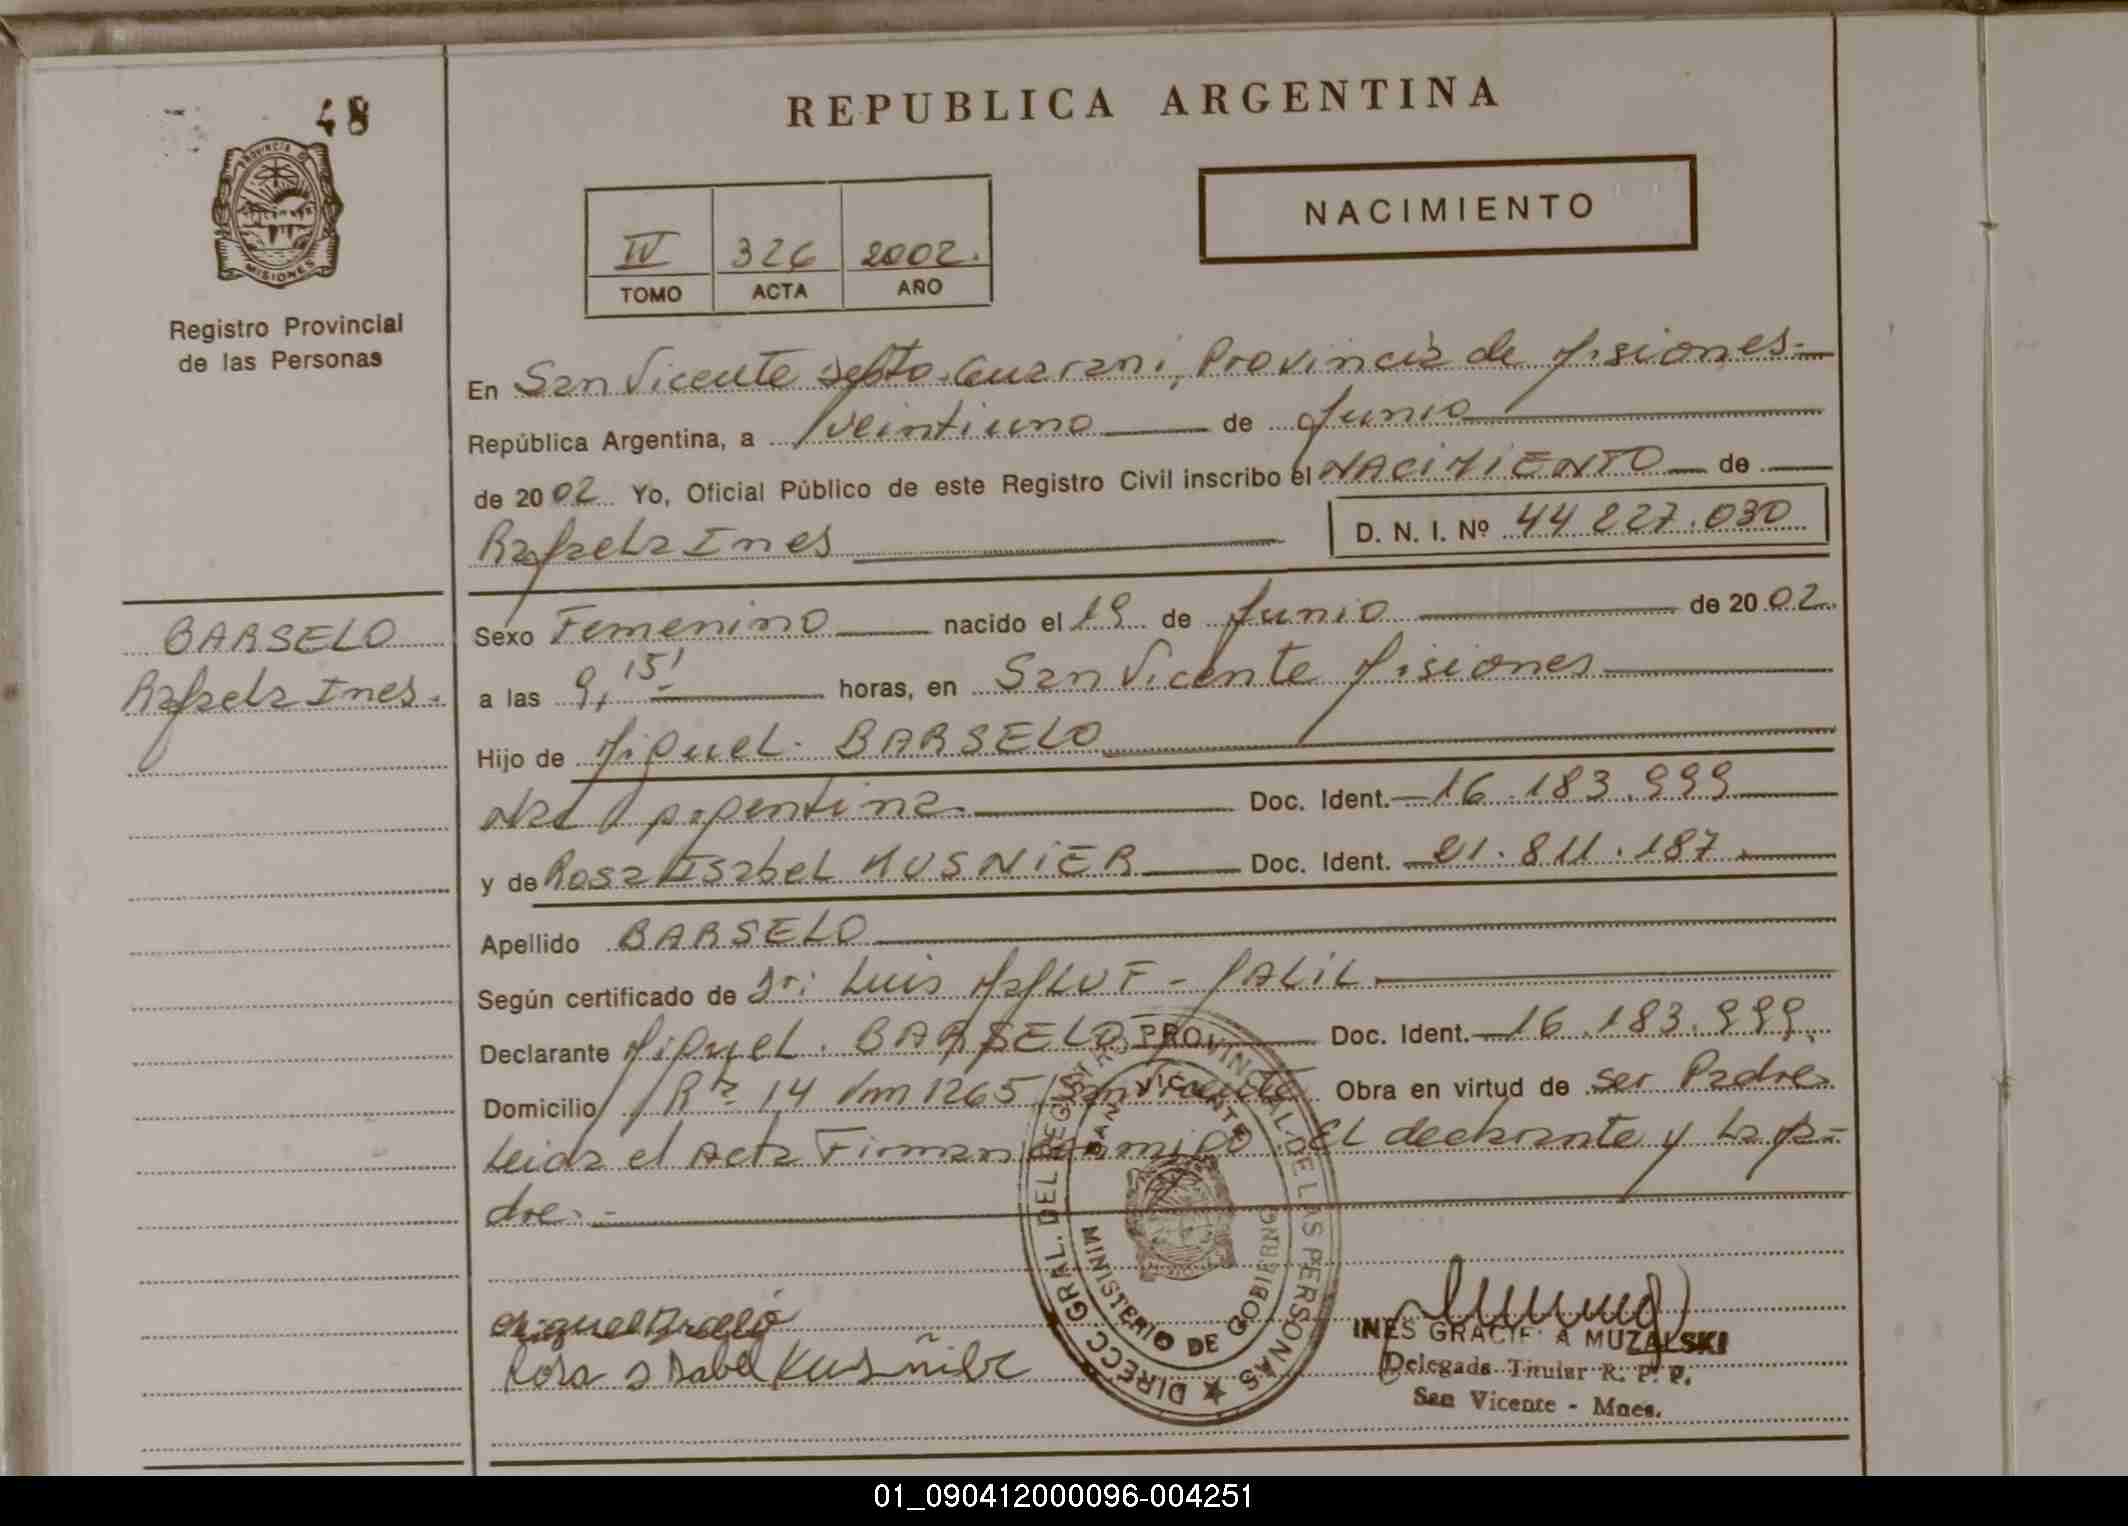 48
REPUBLICA ARGENTINA
PROVINCIA DE
MISIONES
Registro Provincial
de las Personas
NACIMIENTO
IV 326 2002.
TOMO ACTA AÑO
En San Vicente Depto. Guarani, Provincia de Misiones
República Argentina, a veintiuno de Junio
de 2002 Yo, Oficial Público de este Registro Civil inscribo el NACIMIENTO de
Rafaela Ines
D. N. I. Nº 44 227.030
BARSELO
Rafaela Ines.
Sexo Femenino nacido el 19 de Junio de 2002.
a las 9,15' horas, en San Vicente Misiones
Hijo de Miguel. BARSELO
Nac Argentina. Doc. Ident. 16.183.999
y de Rosa Isabel Doc. Ident. 21.811.187.
Apellido BARSELO
Según certificado de Dr: Luis JALIL
Declarante Miguel. BARSELO Doc. Ident. 16.183.999.
Domicilio Rta 14 Km 1265 San Vicente Obra en virtud de ser Padre
Leida el Acta Firman conmigo El declarante y La Ma=
dre.-
DIRECC GRAL. DEL REGISTRO PROVINCIAL DE LAS PERSONAS
SAN VICENTE
MINISTERIO DE GOBIERNO
Rosa Isabel
INES GRACIELA MUZALSKI
Delegada Titular R. P. P.
San Vicente - Mnes.
01_090412000096-004251